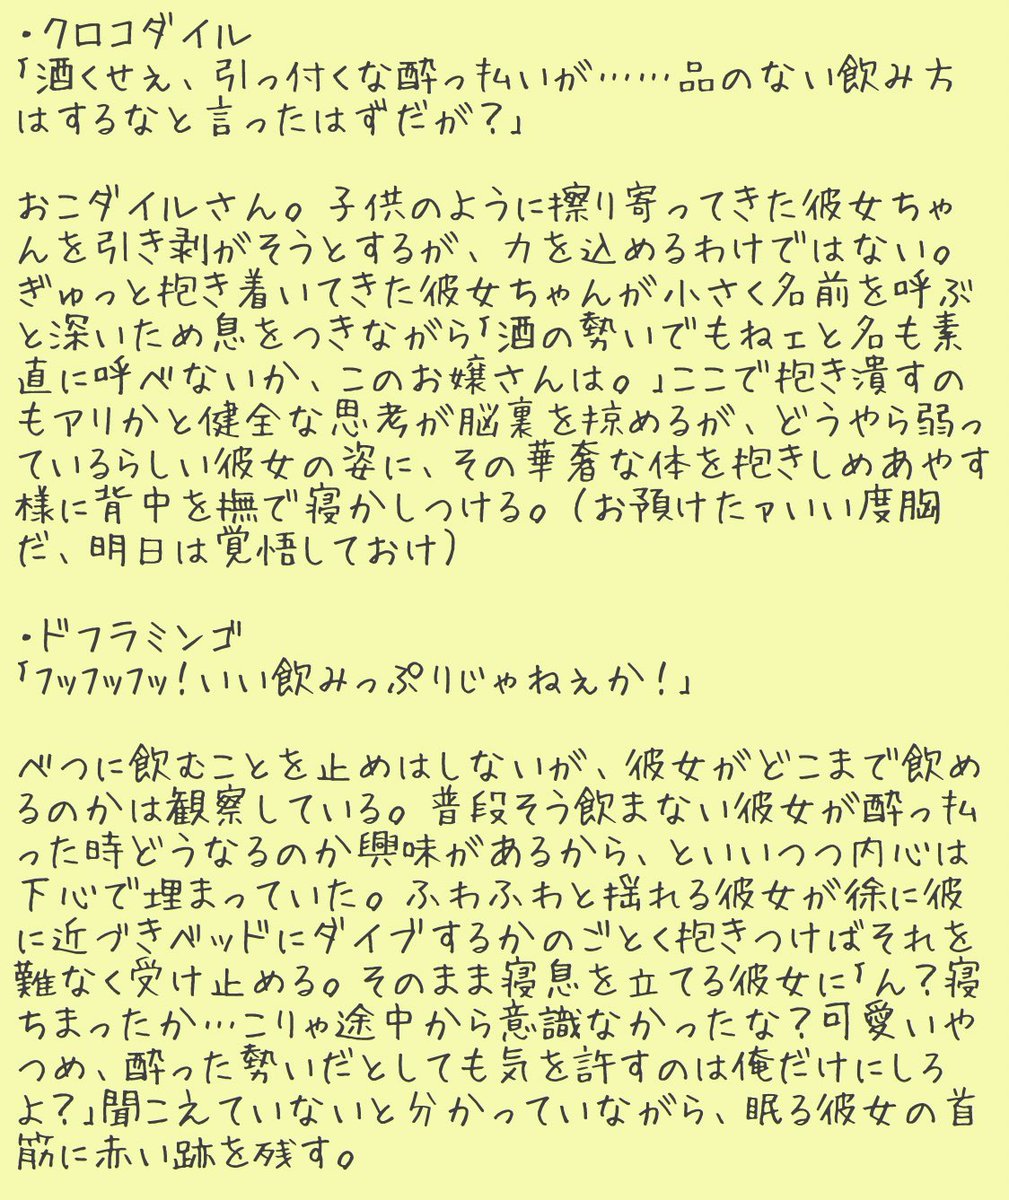 ・クロコダイル
「酒くせぇ、引っ付くな酔っ払いが……品のない飲み方
はするなと言ったはずだが？」
おこダイルさん。子供のように擦り寄ってきた彼女ちゃ
んを引き剥がそうとするが、力を込めるわけではない。
ぎゅっと抱き着いてきた彼女ちゃんが小さく名前を呼ぶ
と深いため息をつきながら「酒の勢いでもねェと名も素
直に呼べないか、このお嬢さんは。」ここで抱き潰すの
もアリかと健全な思考が脳裏を掠めるが、どうやら弱っ
ているらしい彼女の姿に、その華奢な体を抱きしめあやす
様に背中を撫で寝かしつける。（お預けたァいい度胸
だ、明日は覚悟しておけ）
・ドフラミンゴ
「フッフッフッ！いい飲みっぷりじゃねぇか！」
べつに飲むことを止めはしないが、彼女がどこまで飲め
るのかは観察している。普段そう飲まない彼女が酔っ払
った時どうなるのか興味があるから、といいつつ内心は
下心で埋まっていた。ふわふわと揺れる彼女が徐に彼
に近づきベッドにダイブするかのごとく抱きつけばそれを
難なく受け止める。そのまま寝息を立てる彼女に「ん？寝
ちまったか…こりゃ途中から意識なかったな？可愛いや
つめ、酔った勢いだとしても気を許すのは俺だけにしろ
よ？」聞こえていないと分かっていながら、眠る彼女の首
筋に赤い跡を残す。